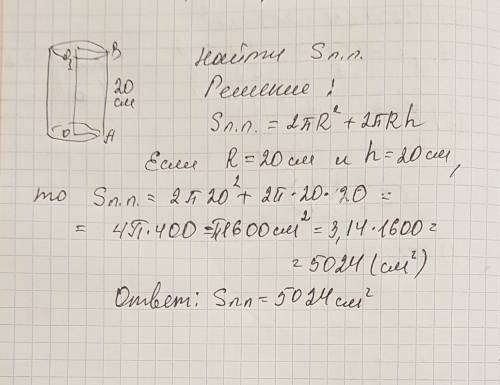 Найти Sп.п.
Решение:
Sп.п. = 2πR² + 2πRh
Если R = 20 см и h = 20 см,
то Sп.п. = 2π20² + 2π·20·20 =
= 4π·400 = π1600 см² = 3,14·1600 =
= 5024 (см²)
Ответ: Sпп = 5024 см²
B
20
см
O
A